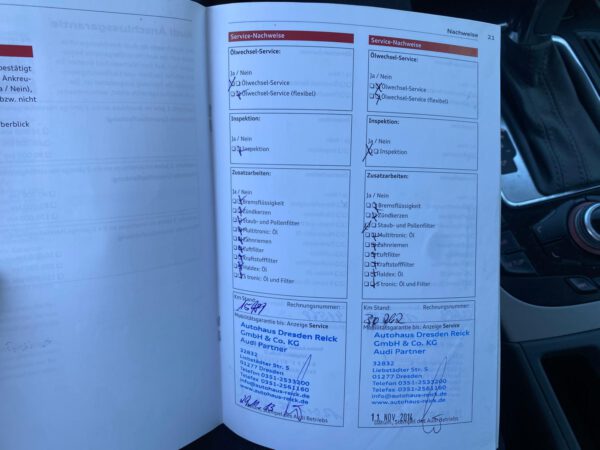 bestätigt
Ankreu-
a / Nein),
bzw. nicht
berblick
Nachweise 21
Service-Nachweise
Ölwechsel-Service:
Ja / Nein
Ölwechsel-Service
Ölwechsel-Service (flexibel)
Inspektion:
Ja / Nein
Inspektion
Zusatzarbeiten:
Ja / Nein
Bremsflüssigkeit
Zündkerzen
Staub- und Pollenfilter
Multitronic: Öl
Zahnriemen
Luftfilter
Kraftstofffilter
Haldex: Öl
S tronic: Öl und Filter
Km Stand: Rechnungsnummer:
Mobilitätsgarantie bis: Anzeige Service
Autohaus Dresden Reick
GmbH & Co. KG
Audi Partner
32832
Liebstädter Str. 5
01277 Dresden
Telefon 0351-2533200
Telefax 0351-2561160
info@autohaus-reick.de
www.autohaus-reick.de
Datum, Stempel des Audi Betriebs
Service-Nachweise
Ölwechsel-Service:
Ja / Nein
Ölwechsel-Service
Ölwechsel-Service (flexibel)
Inspektion:
Ja / Nein
Inspektion
Zusatzarbeiten:
Ja / Nein
Bremsflüssigkeit
Zündkerzen
Staub- und Pollenfilter
Multitronic: Öl
Zahnriemen
Luftfilter
Kraftstofffilter
Haldex: Öl
S tronic: Öl und Filter
Km Stand: Rechnungsnummer:
30 262
Mobilitätsgarantie bis: Anzeige Service
Autohaus Dresden Reick
GmbH & Co. KG
Audi Partner
32832
Liebstädter Str. 5
01277 Dresden
Telefon 0351-2533200
Telefax 0351-2561160
info@autohaus-reick.de
www.autohaus-reick.de
11. NOV. 2014
Datum, Stempel des Audi Betriebs